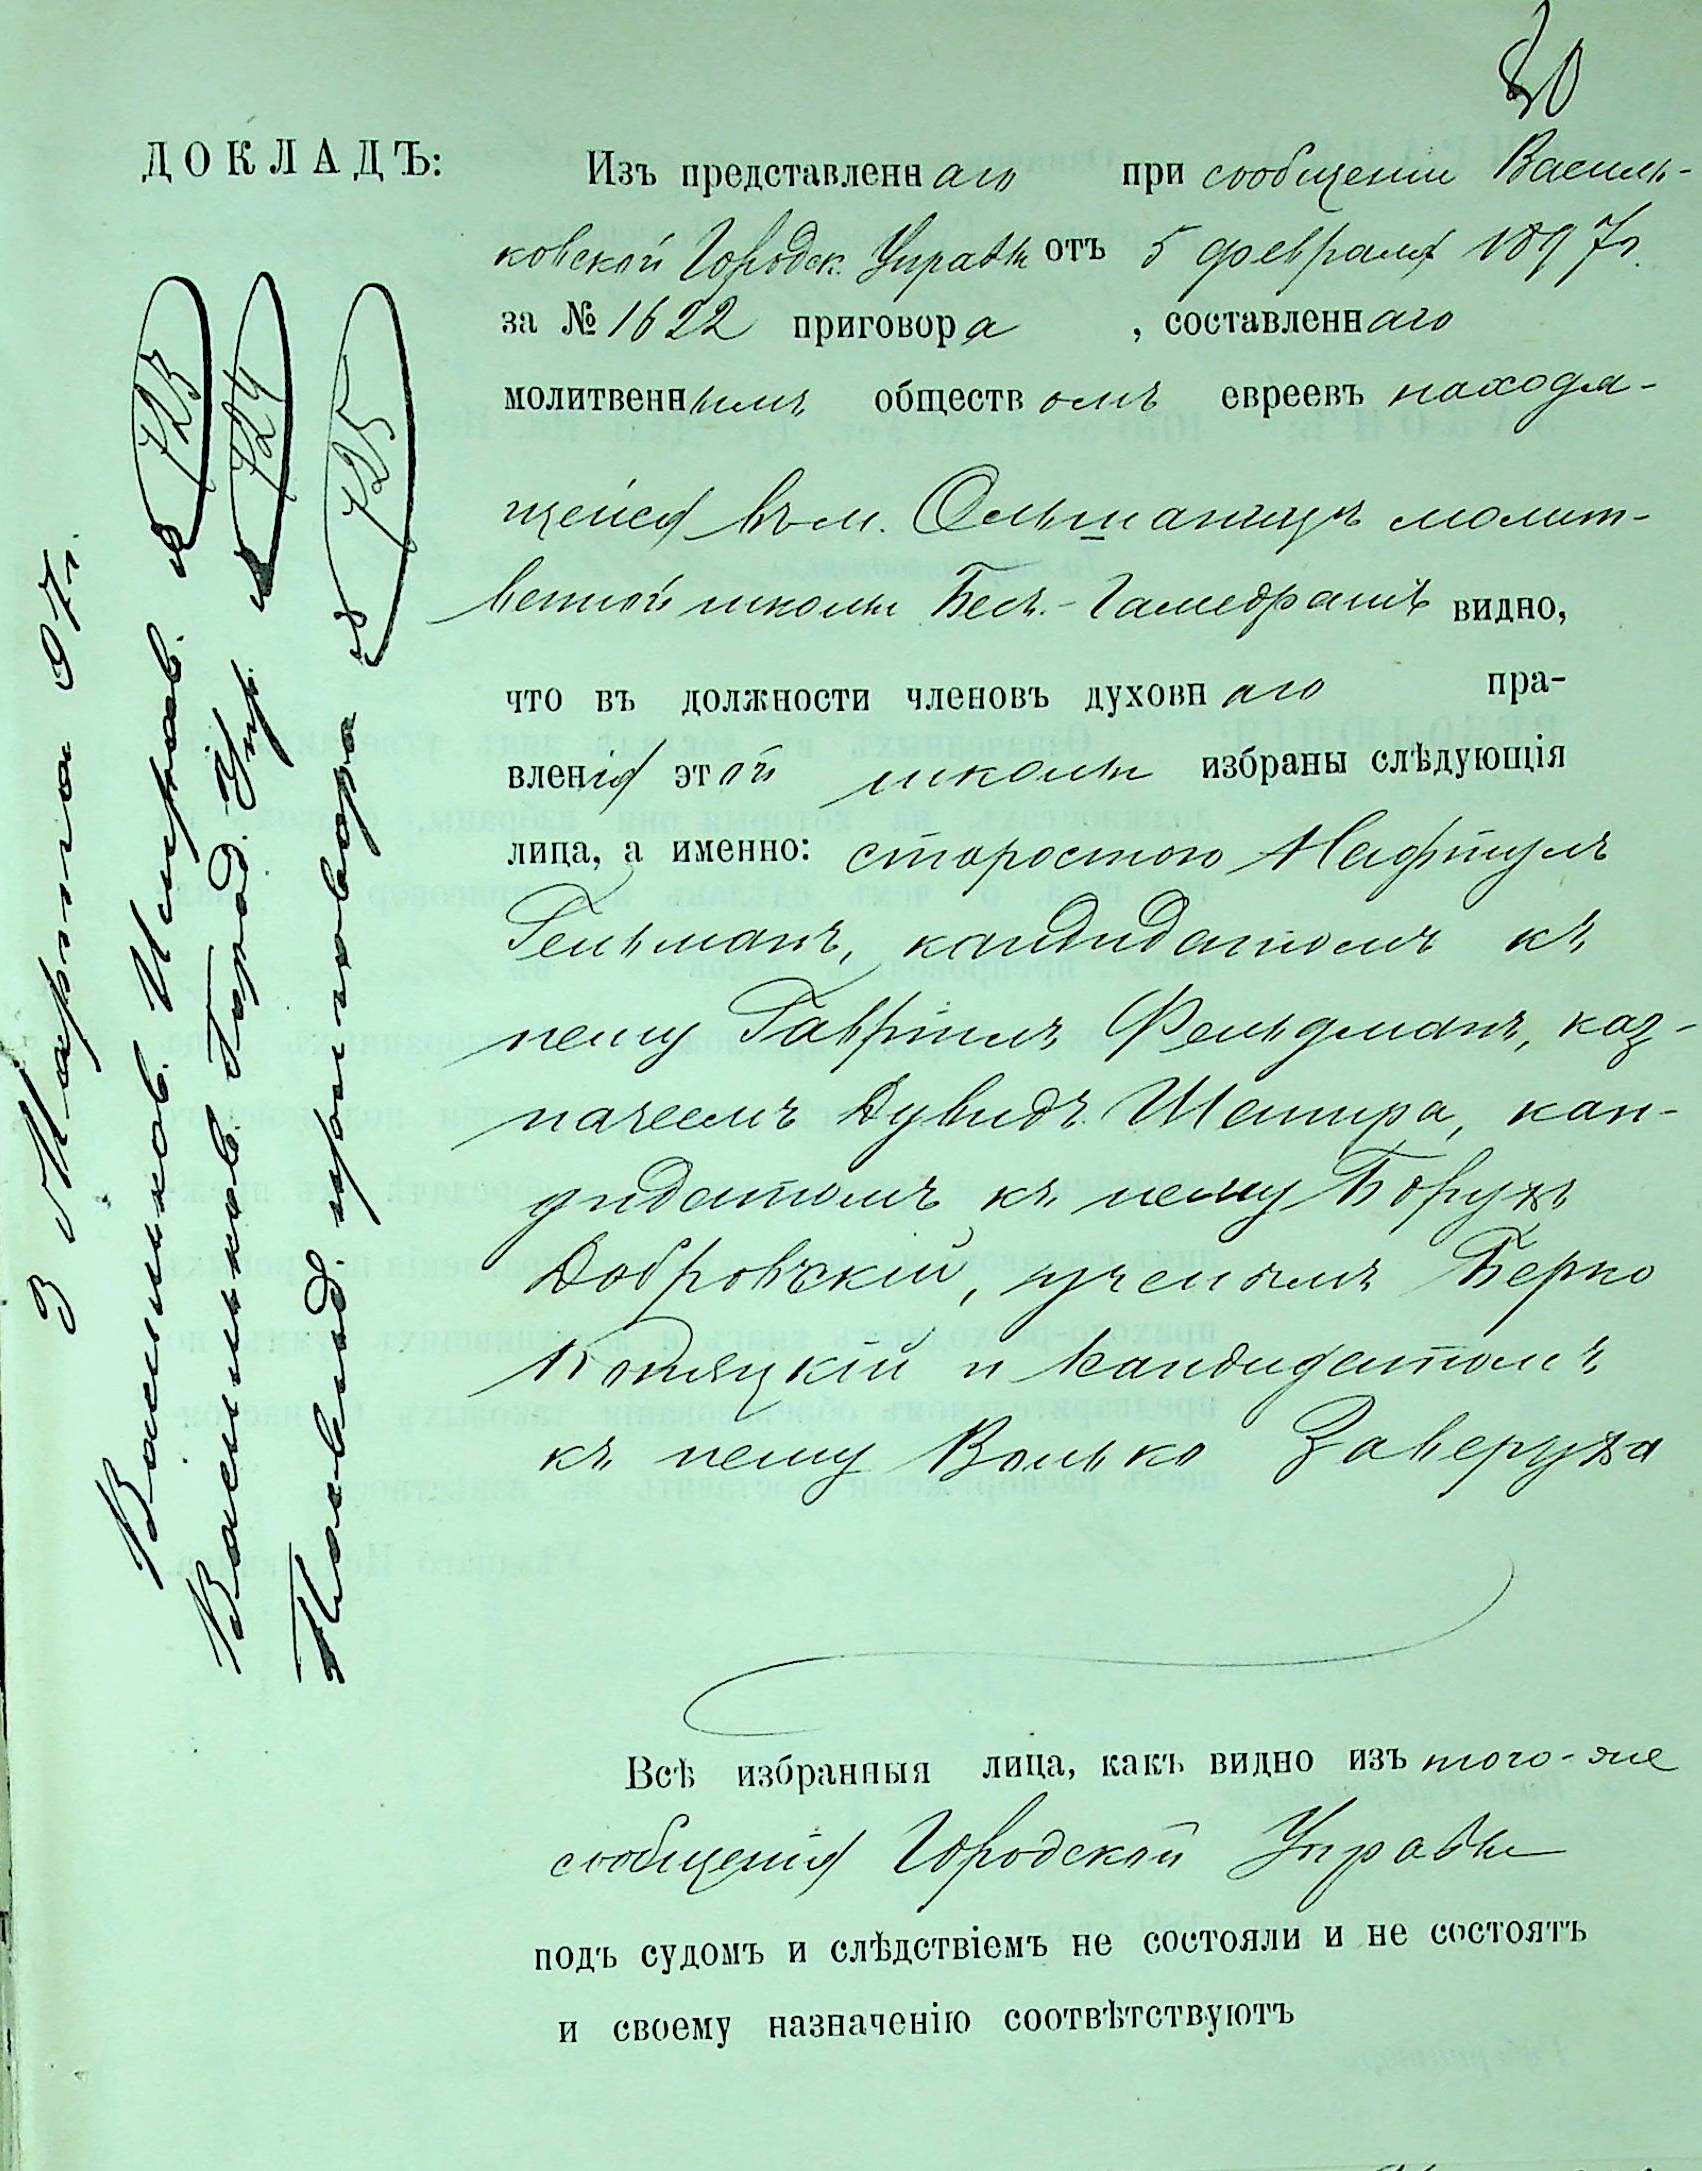 80
ДОКЛАДЪ:
Изъ представленнаго при сообщеніи Василь-
ковской Городск. Управы отъ 5 февраля 1897 г.
за № 1622 приговора, составленнаго
молитвеннымъ обществомъ евреевъ находя-
щейся въ м. Ольшаницѣ молит-
венной школы Бес.-Гамедрашъ видно,
что въ должности членовъ духовнаго пра-
вленія этой школы избраны слѣдующія
лица, а именно: старостою Нафтулъ
Гельманъ, кандидатомъ къ
нему Гавріилъ Фельдманъ, каз-
начеемъ Дувидъ Шапира, кан-
дидатомъ къ нему Борухъ
Добровскій, ученымъ Берко
Копяцкій и кандидатомъ
къ нему Волько Заверуха
Всѣ избранныя лица, какъ видно изъ того-же
сообщенія Городской Управы
подъ судомъ и слѣдствіемъ не состояли и не состоятъ
и своему назначенію соотвѣтствуютъ
3 Марта 97 г.
Васильков. Исправ. 723
Васильков. Город. Упр. 724
приговора 725